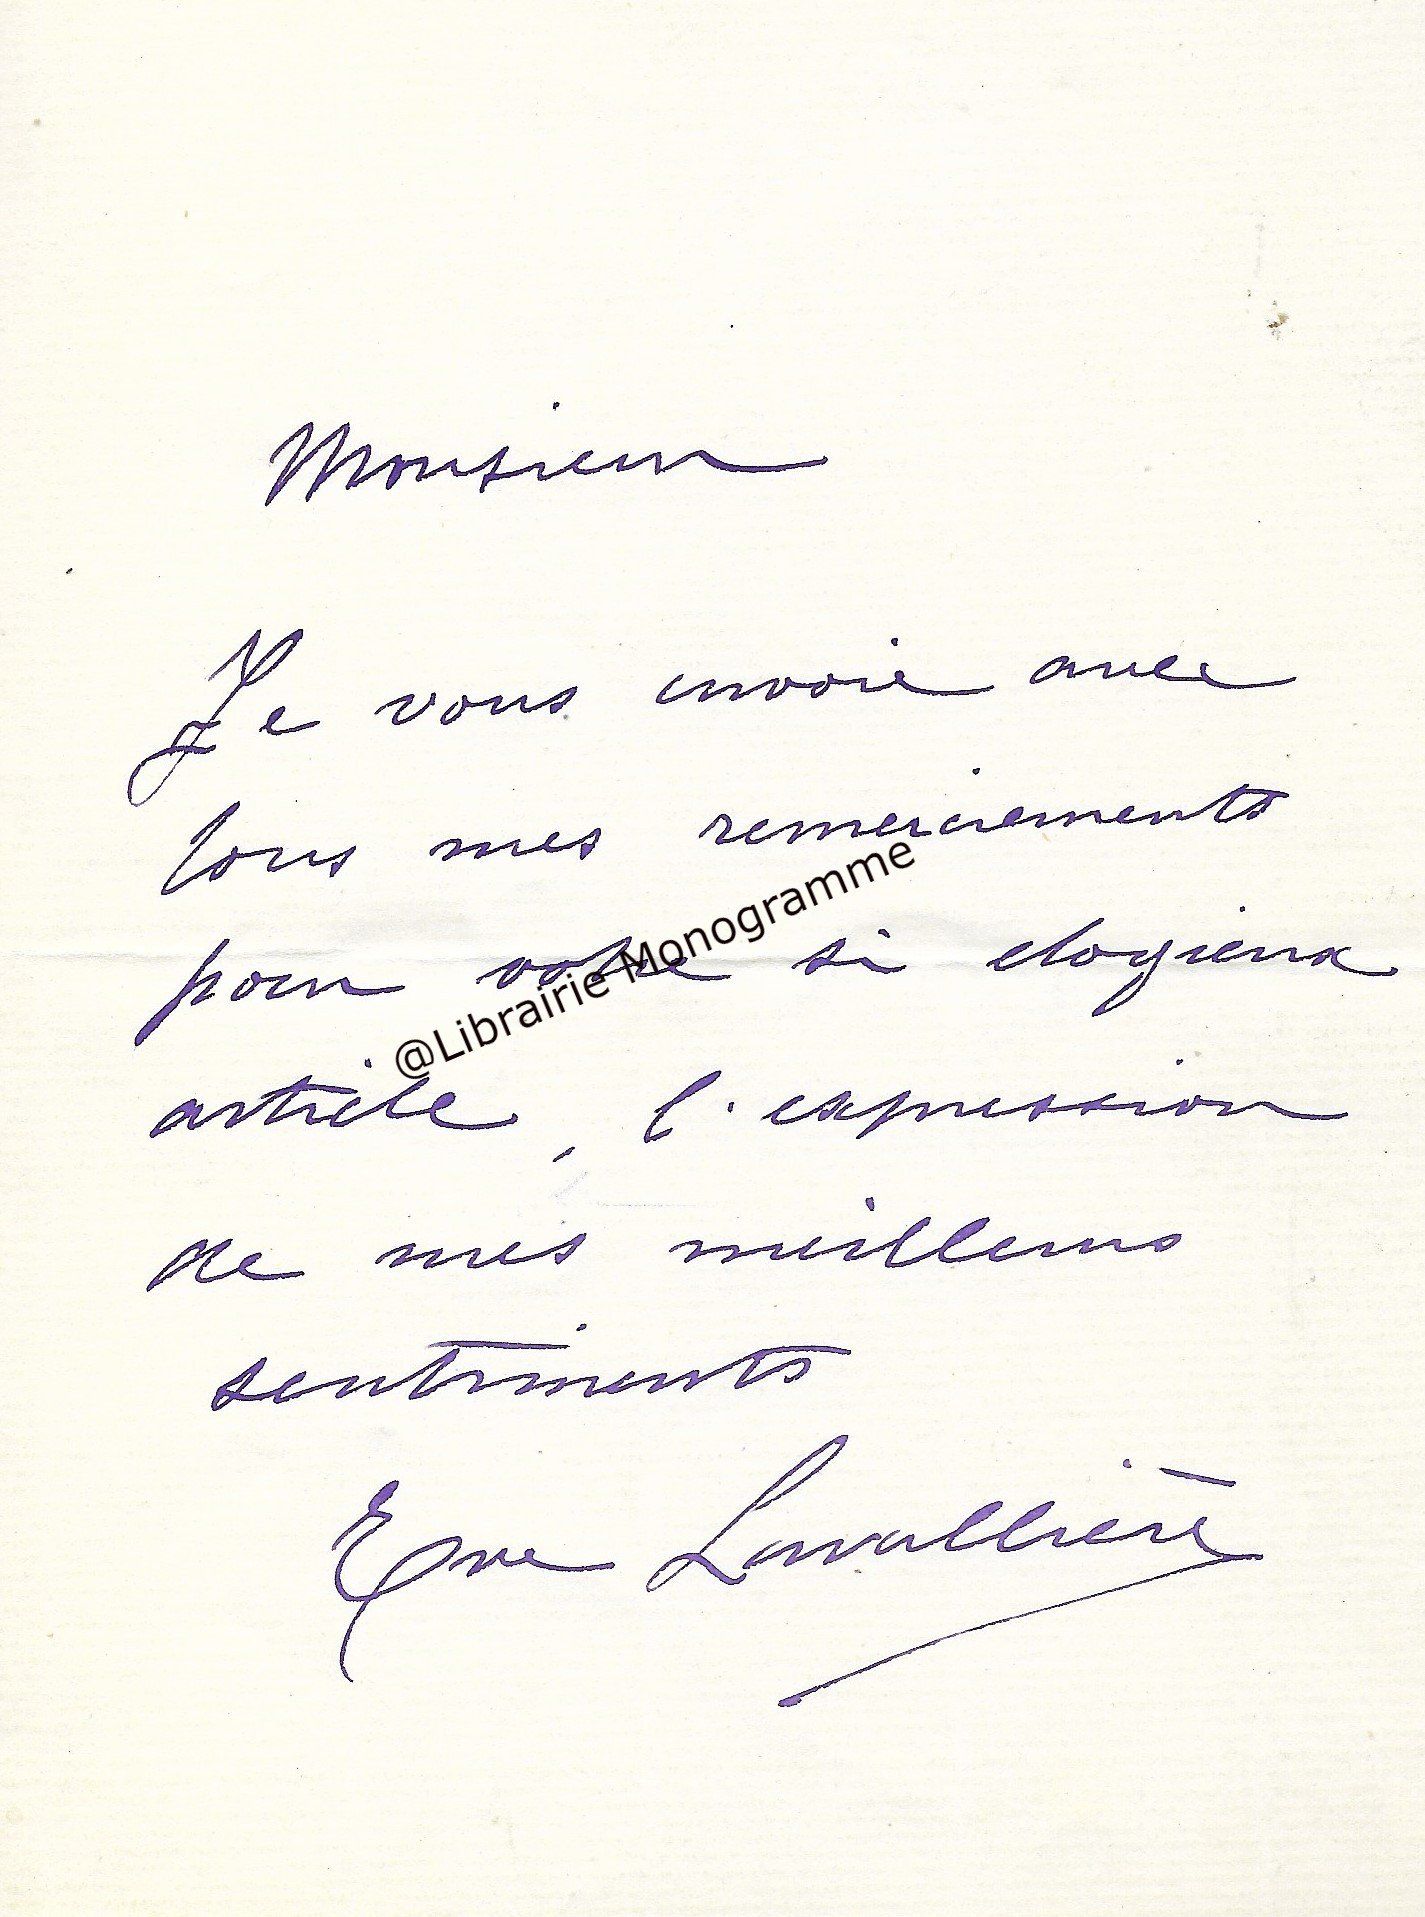 Monsieur
Je vous envoie avec
tous mes remerciements
pour votre si elogieux
article, l'expression
de mes meilleurs
sentiments
Eve Lavallière
@Librairie Monogramme